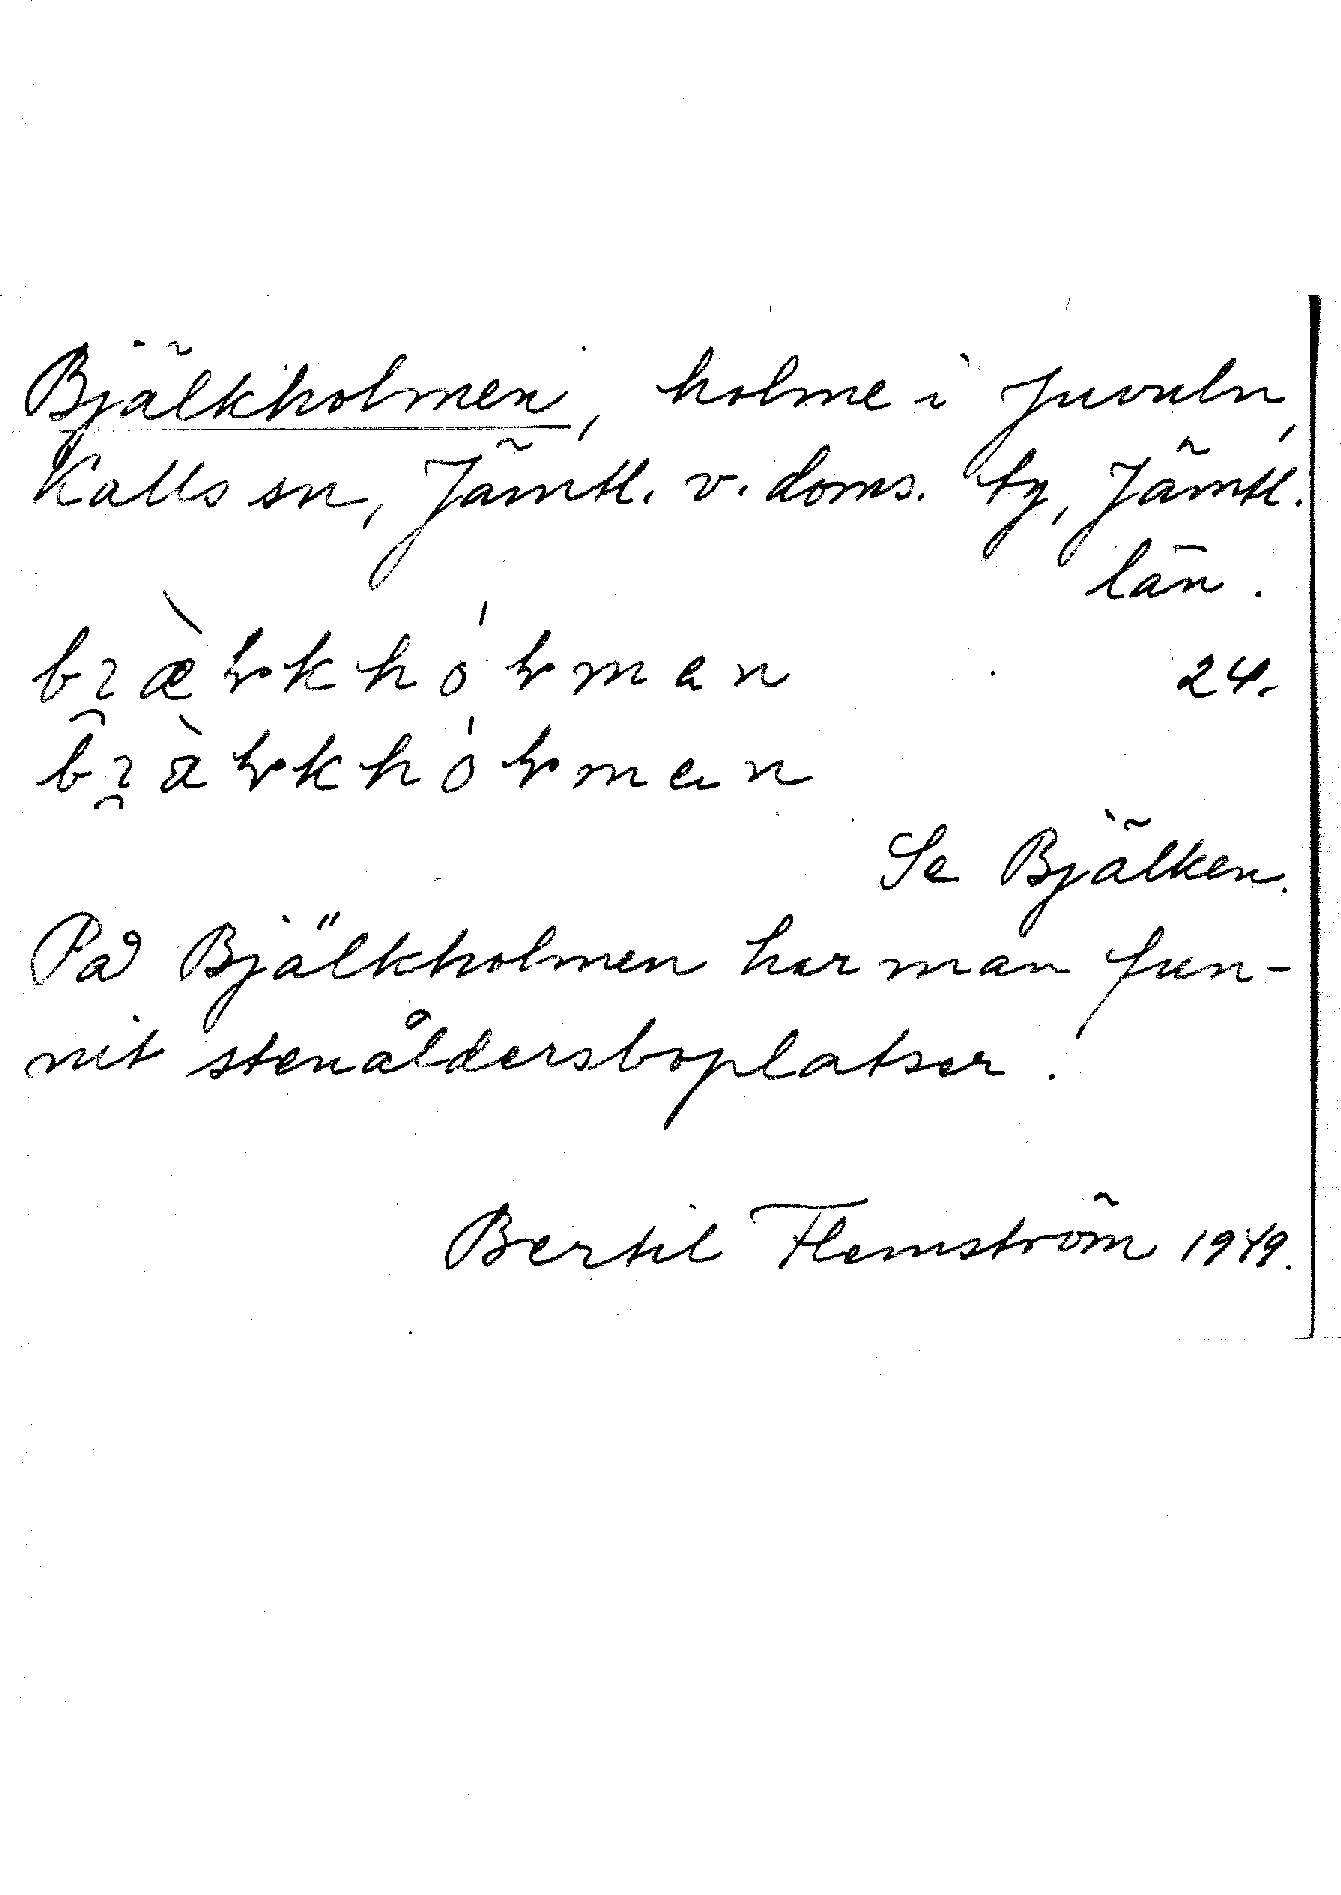 Bjälkholmen, holme i Juvuln,
Kalls sn, Jämtl. v. doms. tg, Jämtl.
län.
24.
Se Bjälken.
På Bjälkholmen har man fun-
nit stenåldersboplatser.
Bertil Flemström 1949.